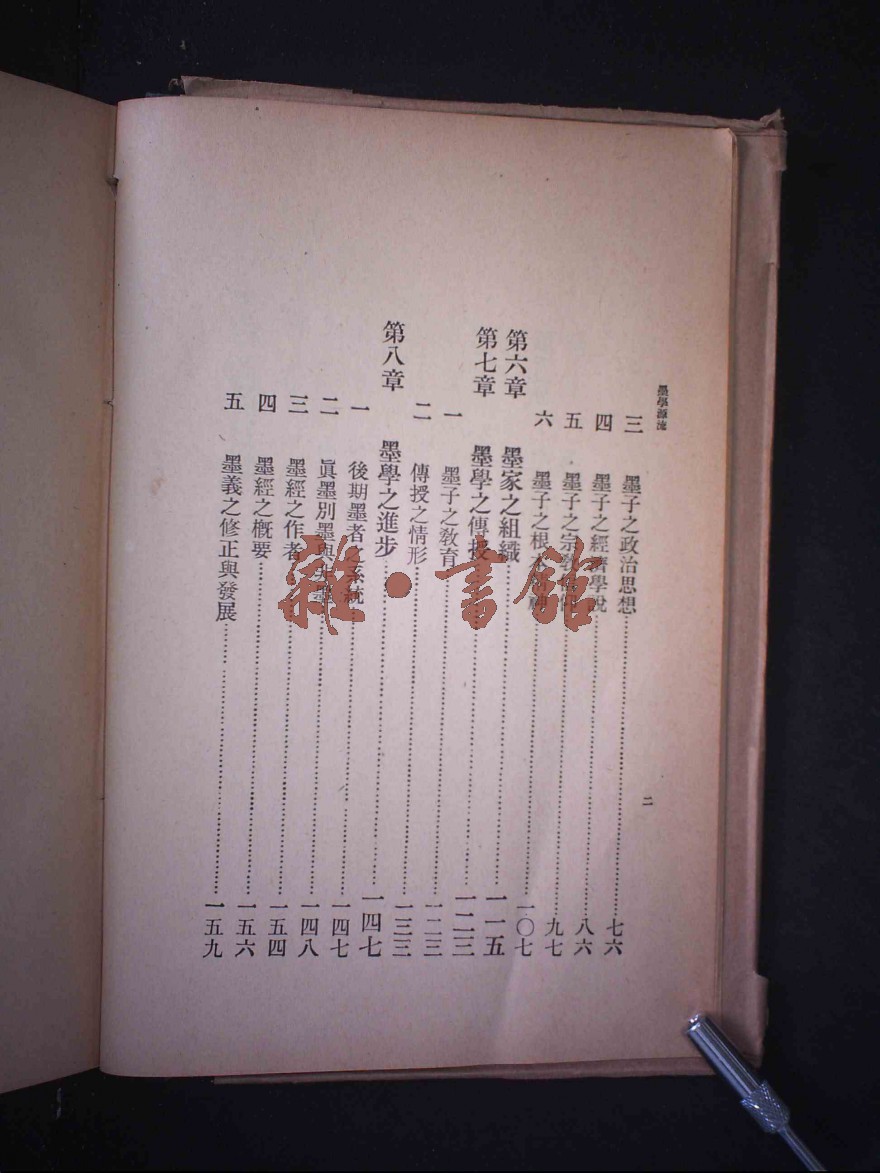 墨學源流
二
三 墨子之政治思想……七六
四 墨子之經濟學說……八六
五 墨子之宗教……九七
六 墨子之根本精神……一〇七
第六章 墨家之組織……一一五
第七章 墨學之傳授……一二三
一 墨子之教育……一二三
二 傳授之情形……一三三
第八章 墨學之進步……一四七
一 後期墨者之系統……一四七
二 眞墨別墨與非墨……一四八
三 墨經之作者……一五四
四 墨經之概要……一五六
五 墨義之修正與發展……一五九
雜·書館